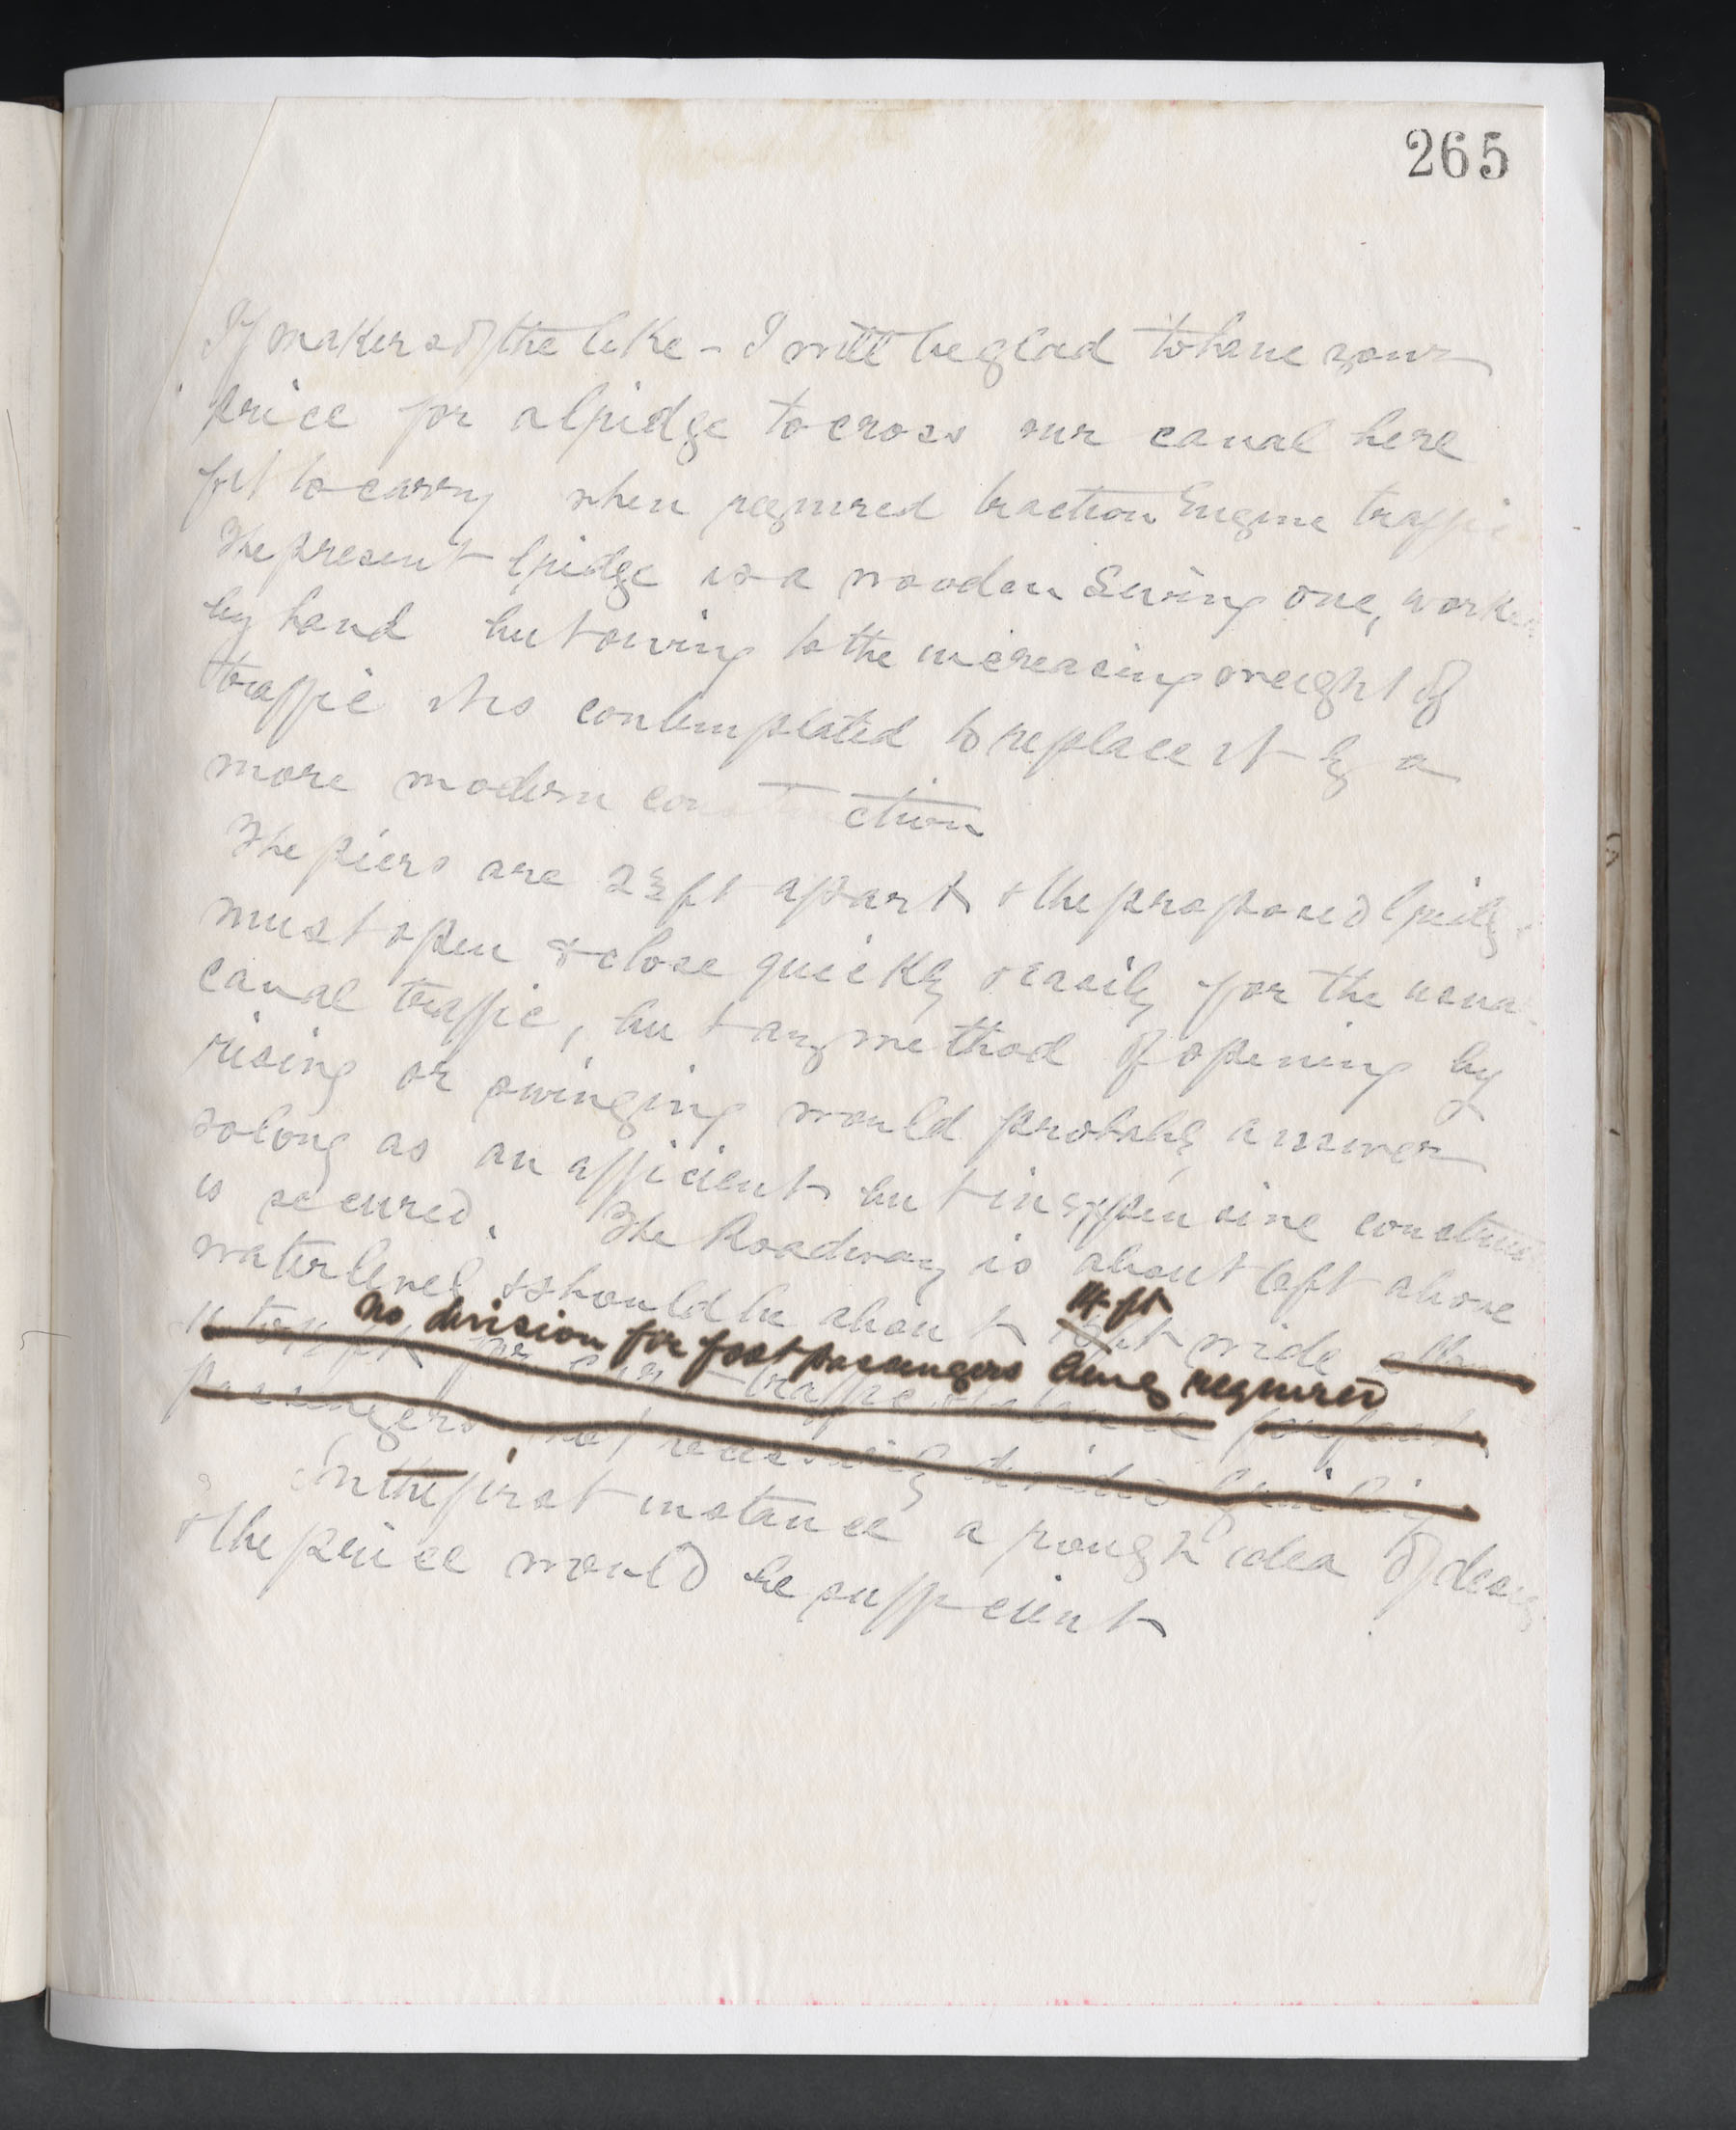 265
If makers of the like - I will be glad to have your
price for a bridge to cross our canal here
fit to carry when required traction Engine traffic
The present bridge is a wooden Swing one, worked
by hand but owing to the increasing weight of
traffic it is contemplated to replace it by a
more modern construction
The piers are ft apart & the proposed bridge
must open & close quickly & easily for the usual
canal traffic, but any method of opening by
rising or swinging would probably answer
so long as an efficient but inexpensive construc
is secured. The Roadway is about 6ft above
14 ft
water level & should be about wide
no division for foot passengers being required
for cart traffic for foot
passengers not necessarily divided
In the first instance a rough idea of design
& the price would be sufficient